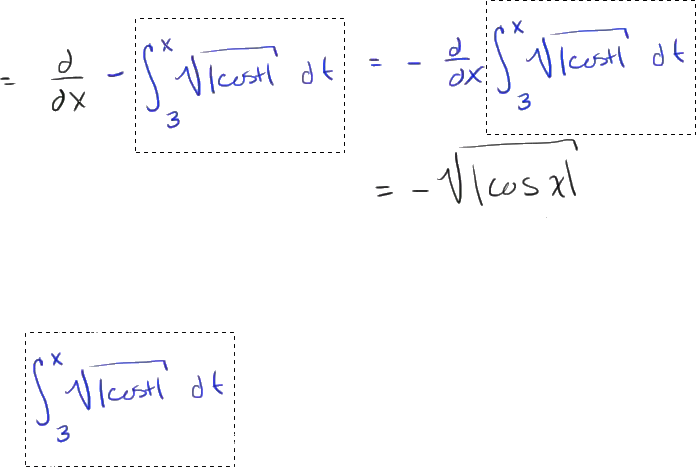 = d/dx - ∫₃ˣ √|cost| dt = - d/dx ∫₃ˣ √|cost| dt
= -√|cos x|
∫₃ˣ √|cost| dt